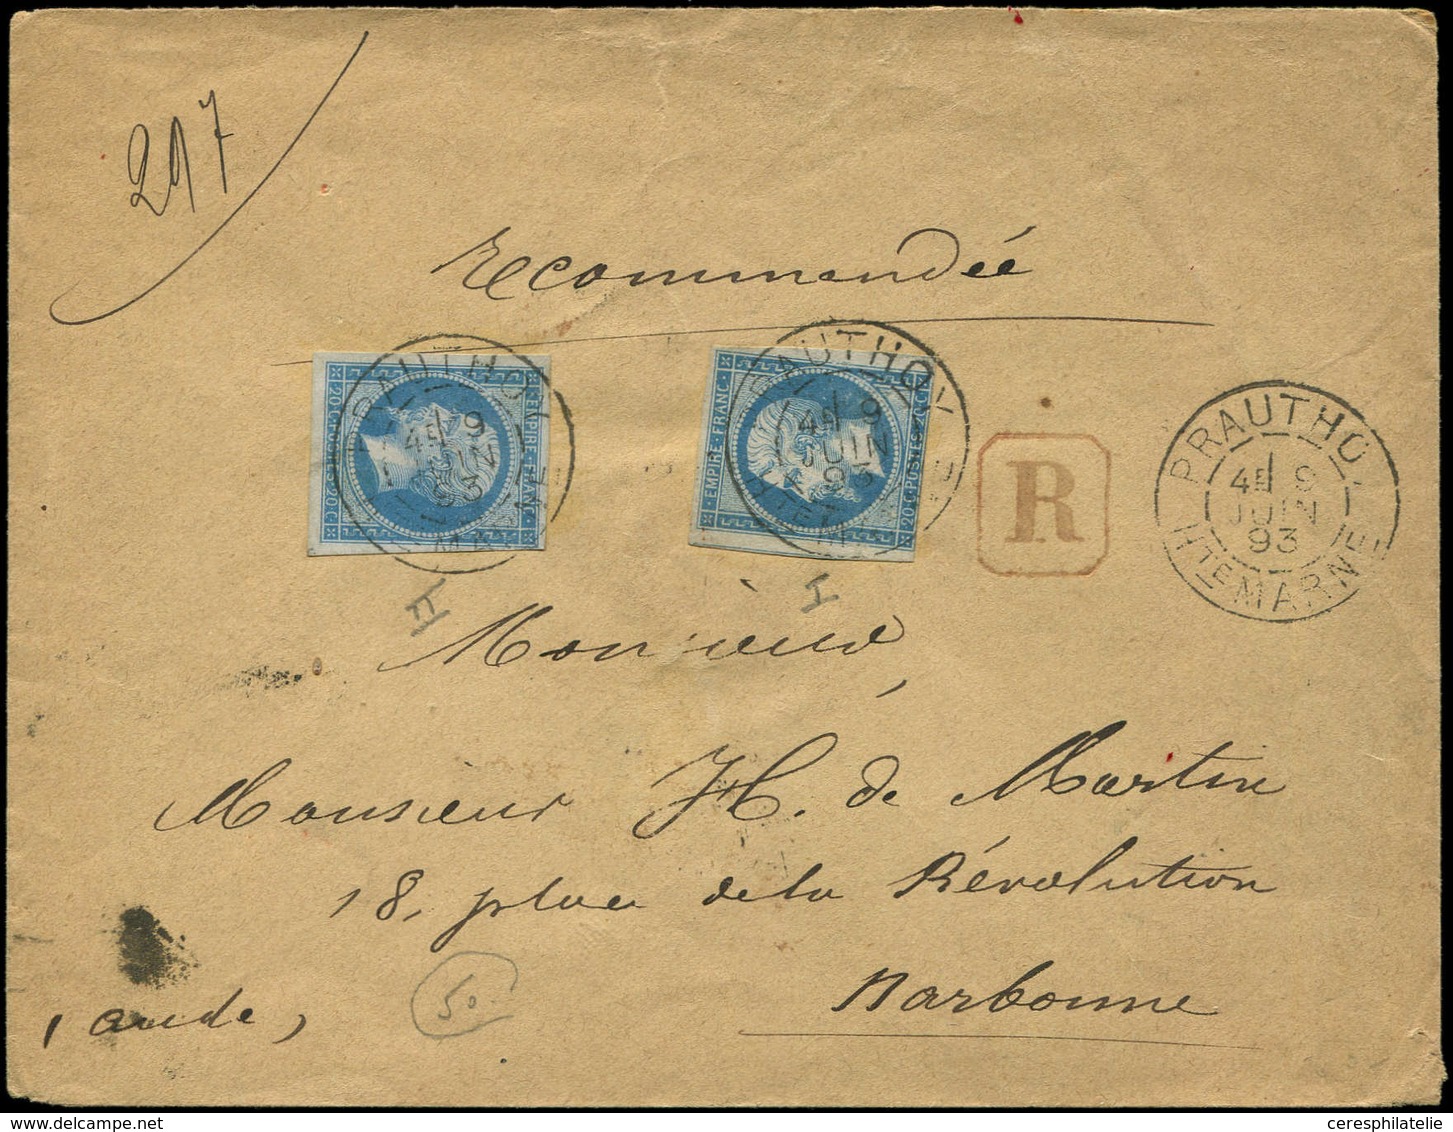 297
Recommandée
EMPIRE FRANC.
20.C.POSTES 20.C.
EMPIRE FRANC.
20.C.POSTES 20.C.
PRAUTHOY
4E 9
JUIN
93
HTE MARNE
PRAUTHOY
4E 9
JUIN
93
HTE MARNE
R
PRAUTHOY
4E 9
JUIN
93
HTE MARNE
II
I
Monsieur
Monsieur H. de Martin
18, place de la Révolution
Narbonne
(Aude)
50
ceresphilatelie